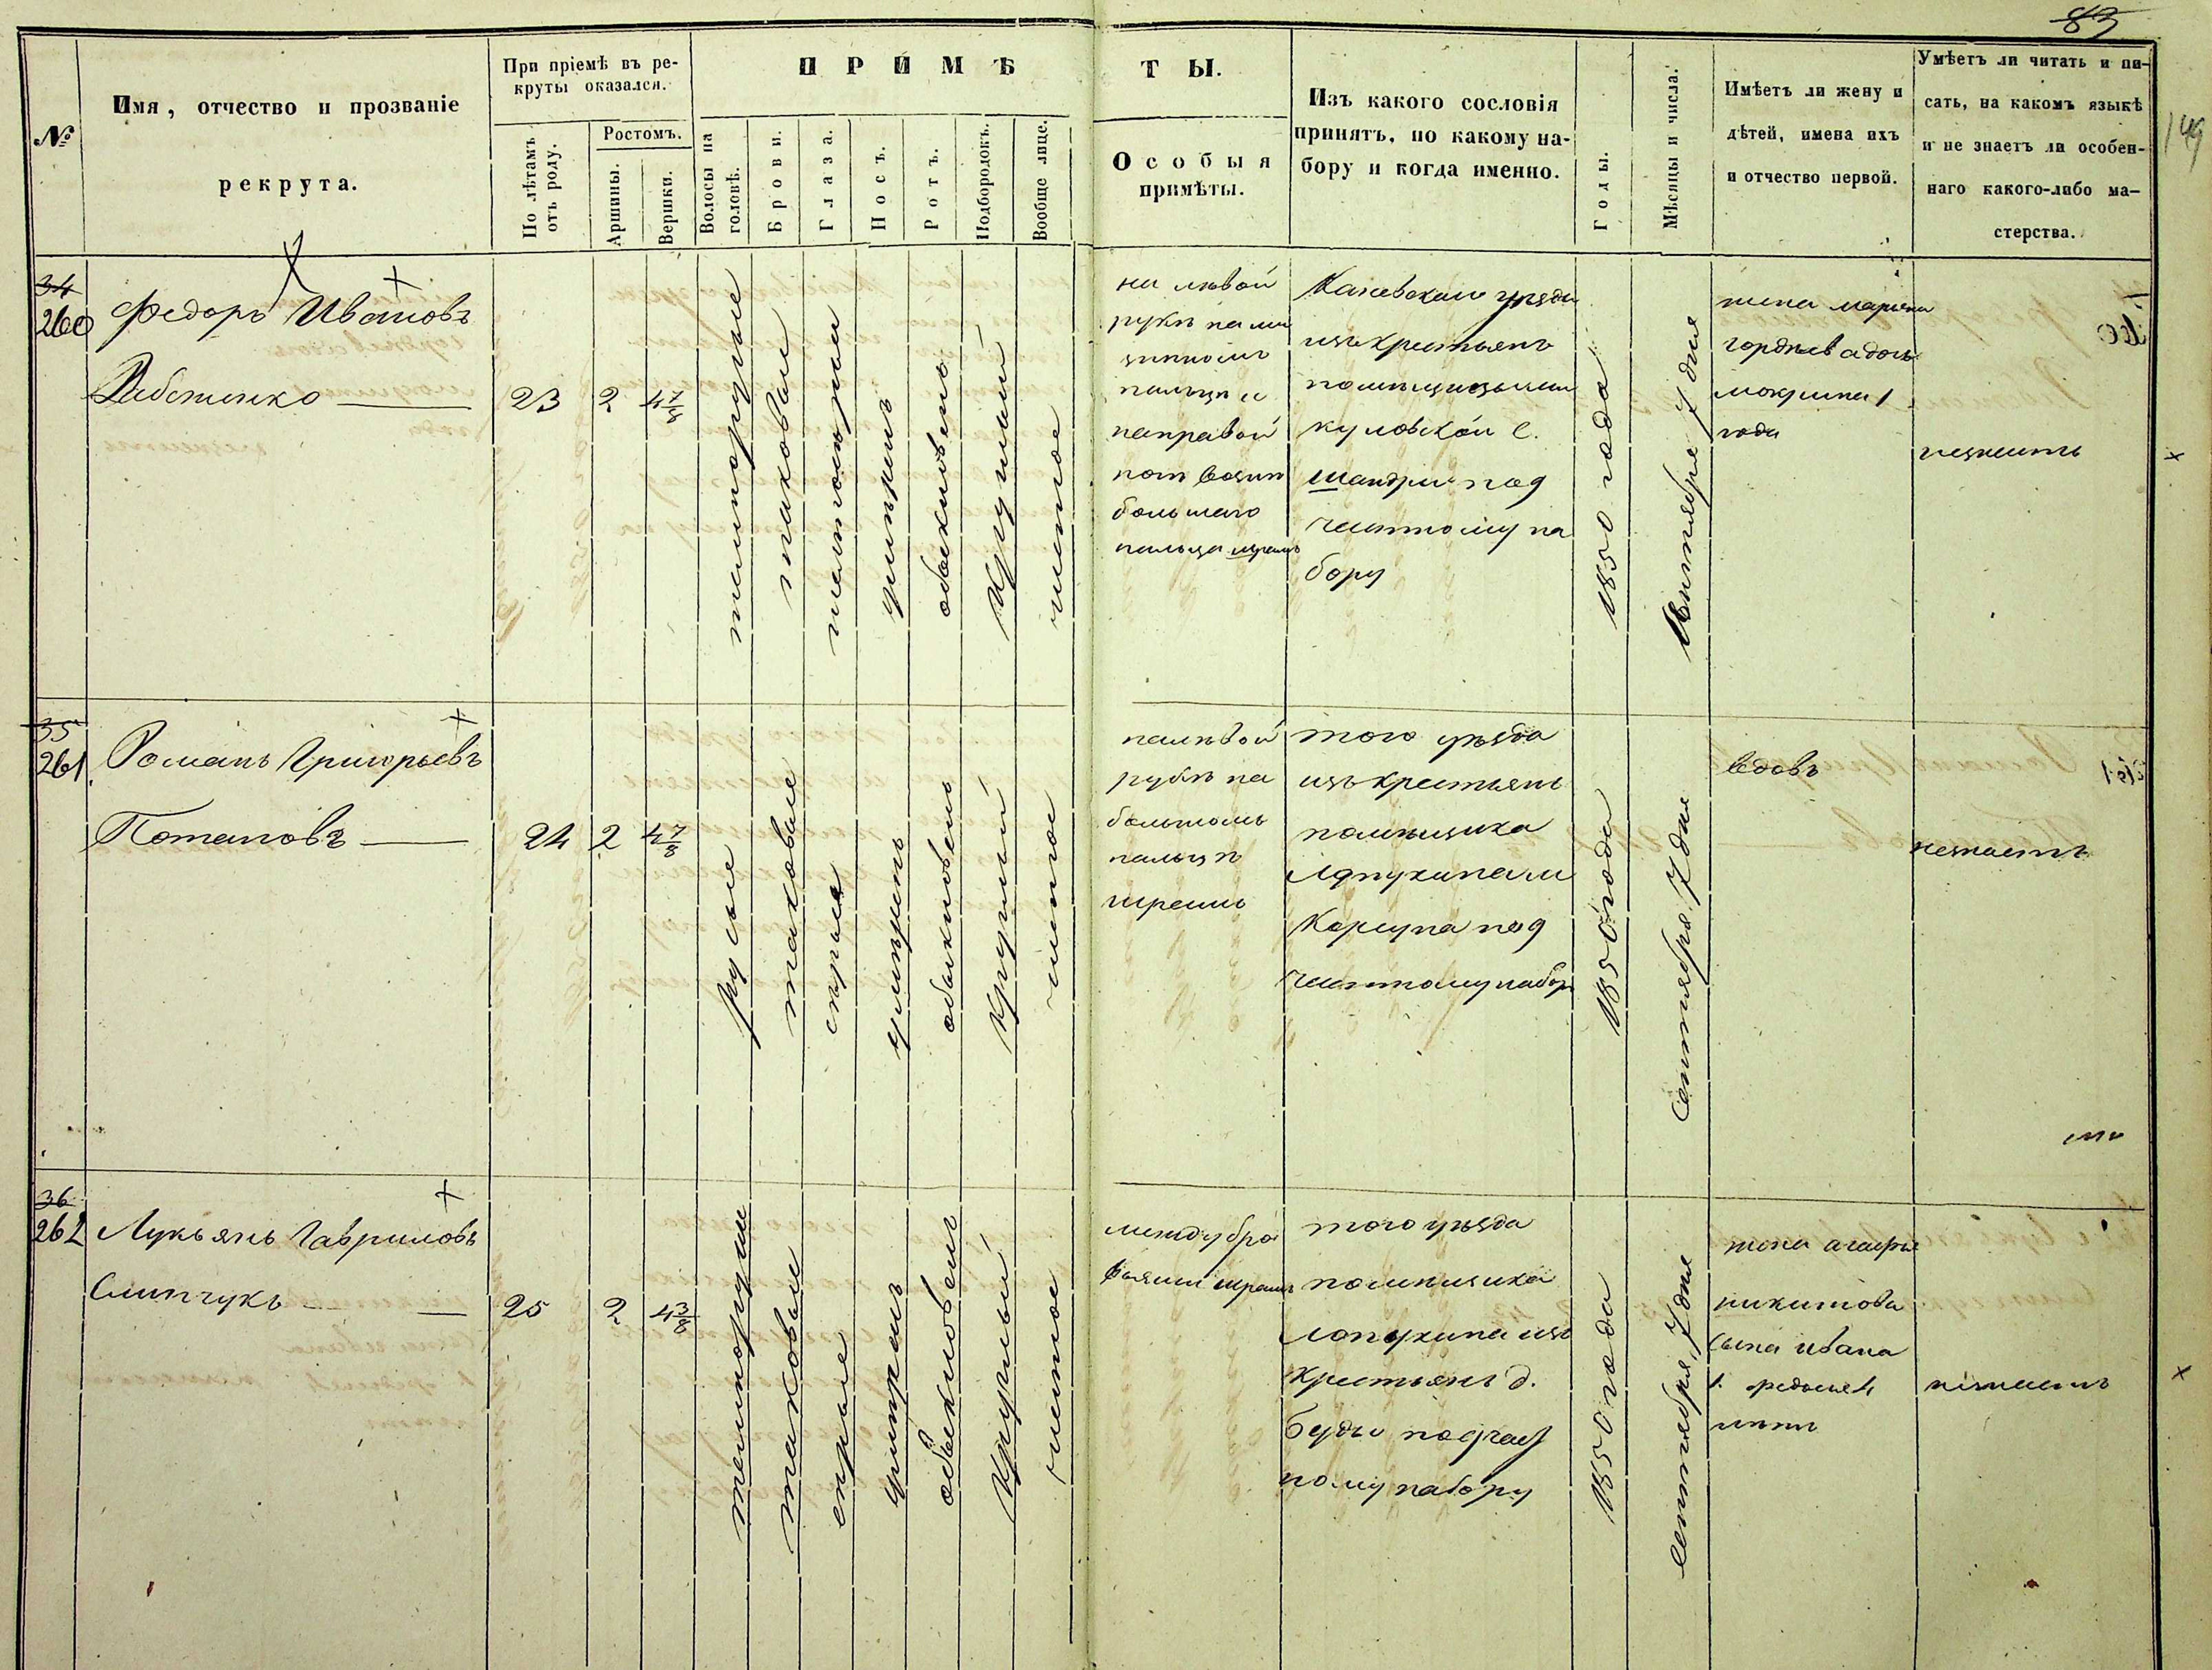 83
149
№
Имя, отчество и прозваніе
рекрута.
При пріемѣ въ ре-
круты оказался.
По лѣтамъ
отъ роду.
Ростомъ.
Аршины.
Вершки.
ПРИМѢТЫ.
Волосы на
головѣ.
Брови.
Глаза.
Носъ.
Ротъ.
Подбородокъ.
Вообще лице.
Особыя
примѣты.
Изъ какого сословія
принятъ, по какому на-
бору и когда именно.
Годы.
Мѣсяцы и числа.
Имѣетъ ли жену и
дѣтей, имена ихъ
и отчество первой.
Умѣетъ ли читать и пи-
сать, на какомъ языкѣ
и не знаетъ ли особен-
наго какого-либо ма-
стерства.
34
260
Федоръ Ивановъ
23
2
4 7/8
темнорусые
таковые
обыкновенъ
круглый
чистое
на лѣвой
рукѣ на ми
зинномъ
пальцѣ и
направой
большаго
пальца шрамъ
Каневскаго уѣзда
изъ крестьянъ
куловской с.
Шандры под
частному на
бору
1850 года
Сентября 7 дня
жена марьяна
гордѣева дочь
мокрина 1
года
незнаетъ
35
261
Романъ Григорьевъ
Потаповъ
24
2
4 7/8
русые
таковые
сѣрые
умѣренъ
обыкновенъ
круглый
чистое
налѣвой
рукѣ на
большомъ
пальцѣ
шрамъ
того уѣзда
изъ крестьянъ
помѣщика
Лопухина м
Корсуна под
частному набор
1850 года
Сентября 7 дня
вдовъ
незнаетъ
36
262
Лукьянъ Гавриловъ
Слипчукъ
25
2
4 3/8
темнорусые
таковые
сѣрые
умѣренъ
обыкновенъ
круглый
чистое
между бро
вьями шрамъ
того уѣзда
помѣщика
Лопухина изъ
крестьянъ д.
Буды подчаст
ному набору
1850 года
сентября 7 дня
жена агафья
никитова
сына ивана
незнаетъ